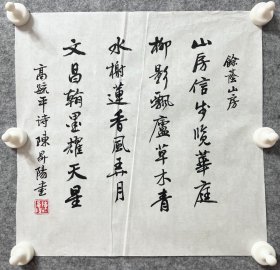 餘蔭山房
山房信步览華庭
柳影飄廬草木青
水榭蓮香風弄月
文昌翰墨耀天星
高毓平诗陳昇陽書